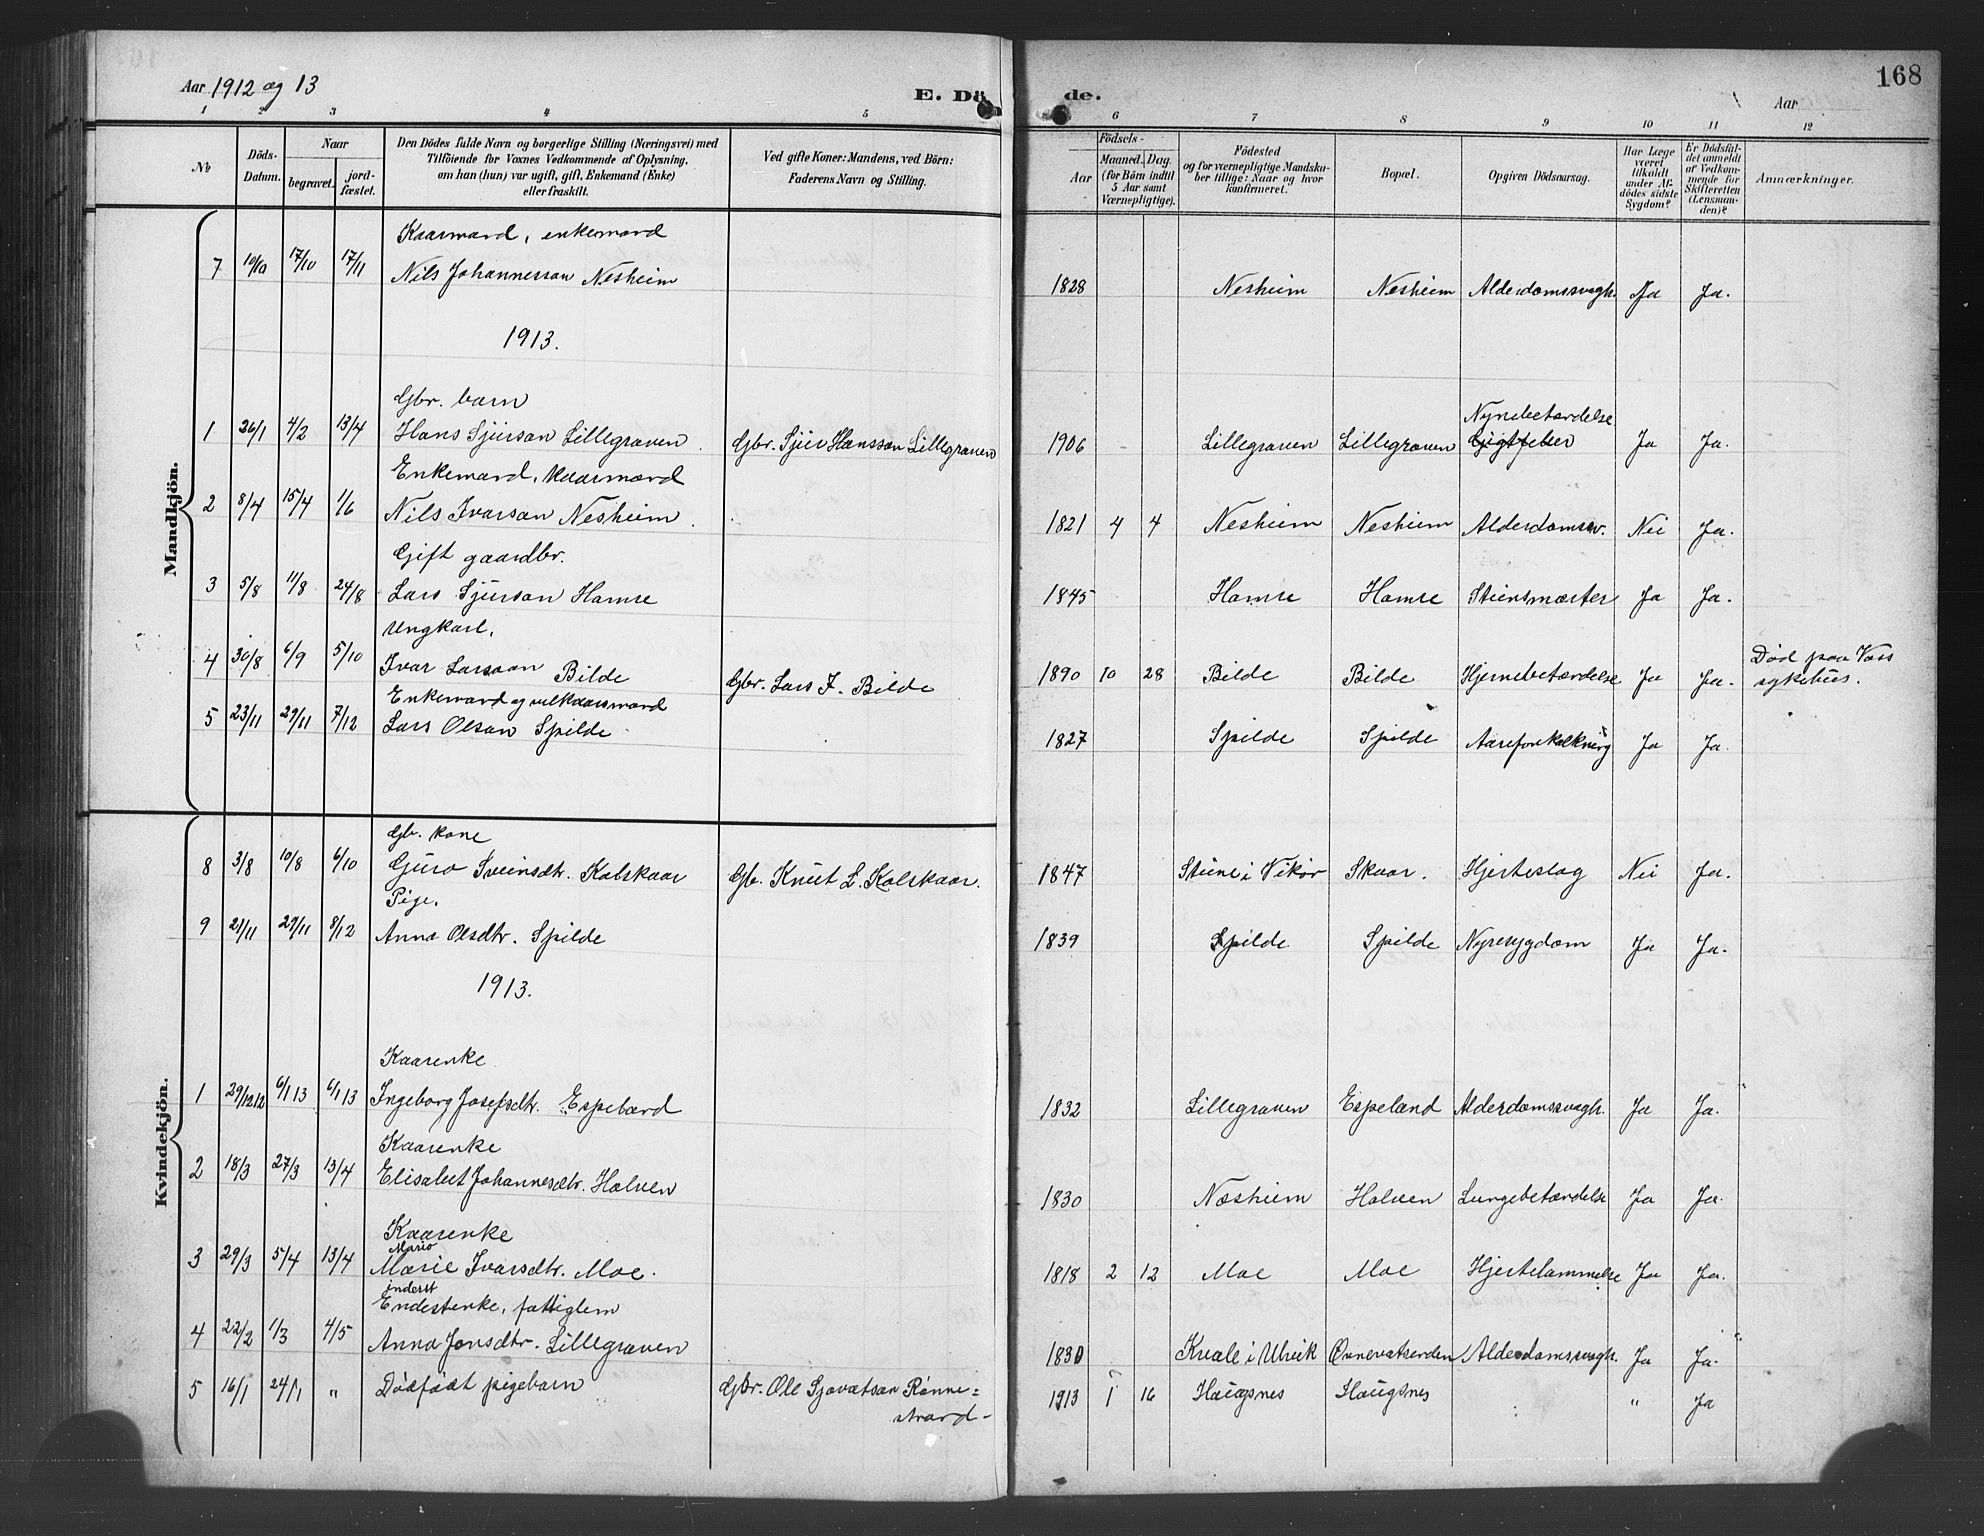 168
Aar 1912 og 13
E. Dö de.
Aar
1 2 3 4 5 6 7 8 9 10 11 12
№
Döds-Datum.
Naar
begravet.
jord-fæstet.
Den Dödes fulde Navn og borgerlige Stilling (Næringsvei) med
Tilföiende for Voxnes Vedkommende af Oplysning,
om han (hun) var ugift, gift, Enkemand (Enke)
eller fraskilt.
Ved gifte Koner: Mandens, ved Börn:
Faderens Navn og Stilling.
Aar
Födsels-
Maaned. Dag.
(for Börn indtil
5 Aar samt
Værnepligtige).
Födested
og for værnepligtige Mandska-
ber tillige: Naar og hvor
konfirmeret.
Bopæl.
Opgiven Dödsaarsag.
Har Læge
været
tilkaldt
under Af-
dödes sidste
Sygdom?
Er Dödsfal-
det anmeldt
af Vedkom-
mende for
Skifteretten
(Lensman-
den)?
Anmærkninger.
Mandkjön.
Kaarmand, enkemand
7 10/10 17/10 17/11 Nils Johannesson Nesheim 1828 Nesheim Nesheim Alderdomssvagh. Ja Ja.
1913.
Gbr. barn Nyrebetændelse
1 26/1 4/2 13/4 Hans Sjurson Lillegraven Gbr. Sjur Hansson Lillegraven 1906 - Lillegraven Lillegraven Gigtfeber Ja Ja.
Enkemand, Kaarmand
2 8/4 15/4 1/6 Nils Ivarson Nesheim 1821 4 4 Nesheim Nesheim Alderdomssv. Nei Ja.
Gift gaardbr.
3 5/8 11/8 24/8 Lars Sjurson Hamre 1845 Hamre Hamre Stensmerter Ja Ja.
Ungkarl.
4 30/8 6/9 5/10 Ivar Larsson Bilde Gbr. Lars I. Bilde 1890 10 28 Bilde Bilde Hjernebetændelse Ja Ja. Död paa Voss
sykehus.
Enkemand og velkaarsmand
5 23/11 29/11 7/12 Lars Olson Spilde 1827 Spilde Spilde Aareforkalkning Ja Ja.
Kvindekjön.
Gb. kone
8 3/8 10/8 6/10 Guro Sveinsdtr. Kolskaar Gb. Knut L. Kolskaar. 1847 Steine i Vikør Skaar. Hjerteslag Nei Ja.
Pige.
9 21/11 29/11 8/12 Anna Olsdtr. Spilde 1839 Spilde Spilde Nyresygdom Ja Ja.
1913.
Kaarenke
1 29/12 12 6/1 13 6/1 13 Ingeborg Josefsdtr. Espeland 1832 Lillegraven Espeland Alderdomssvagh. Ja Ja.
Kaarenke
2 18/3 27/3 13/4 Elisabet Johannesdtr. Halven 1830 Næsheim Halven Lungebetændelse Ja Ja.
Kaarenke
Mario
3 29/3 5/4 13/4 Marie Ivarsdtr. Moe. 1818 2 12 Moe Moe Hjertelammelse Ja Ja.
inderst
Enderstenke, fattiglem
4 22/2 1/3 4/5 Anna Jonsdtr. Lillegraven 1830 Kvale i Ulvik Øvnevatsenden Alderdomssvagh. Ja Ja.
5 16/1 24/1 " Dödfödt pigebarn Gbr. Ole Sjovatson Rønne=
strand- 1913 1 16 Haugsnes Haugsnes " Ja